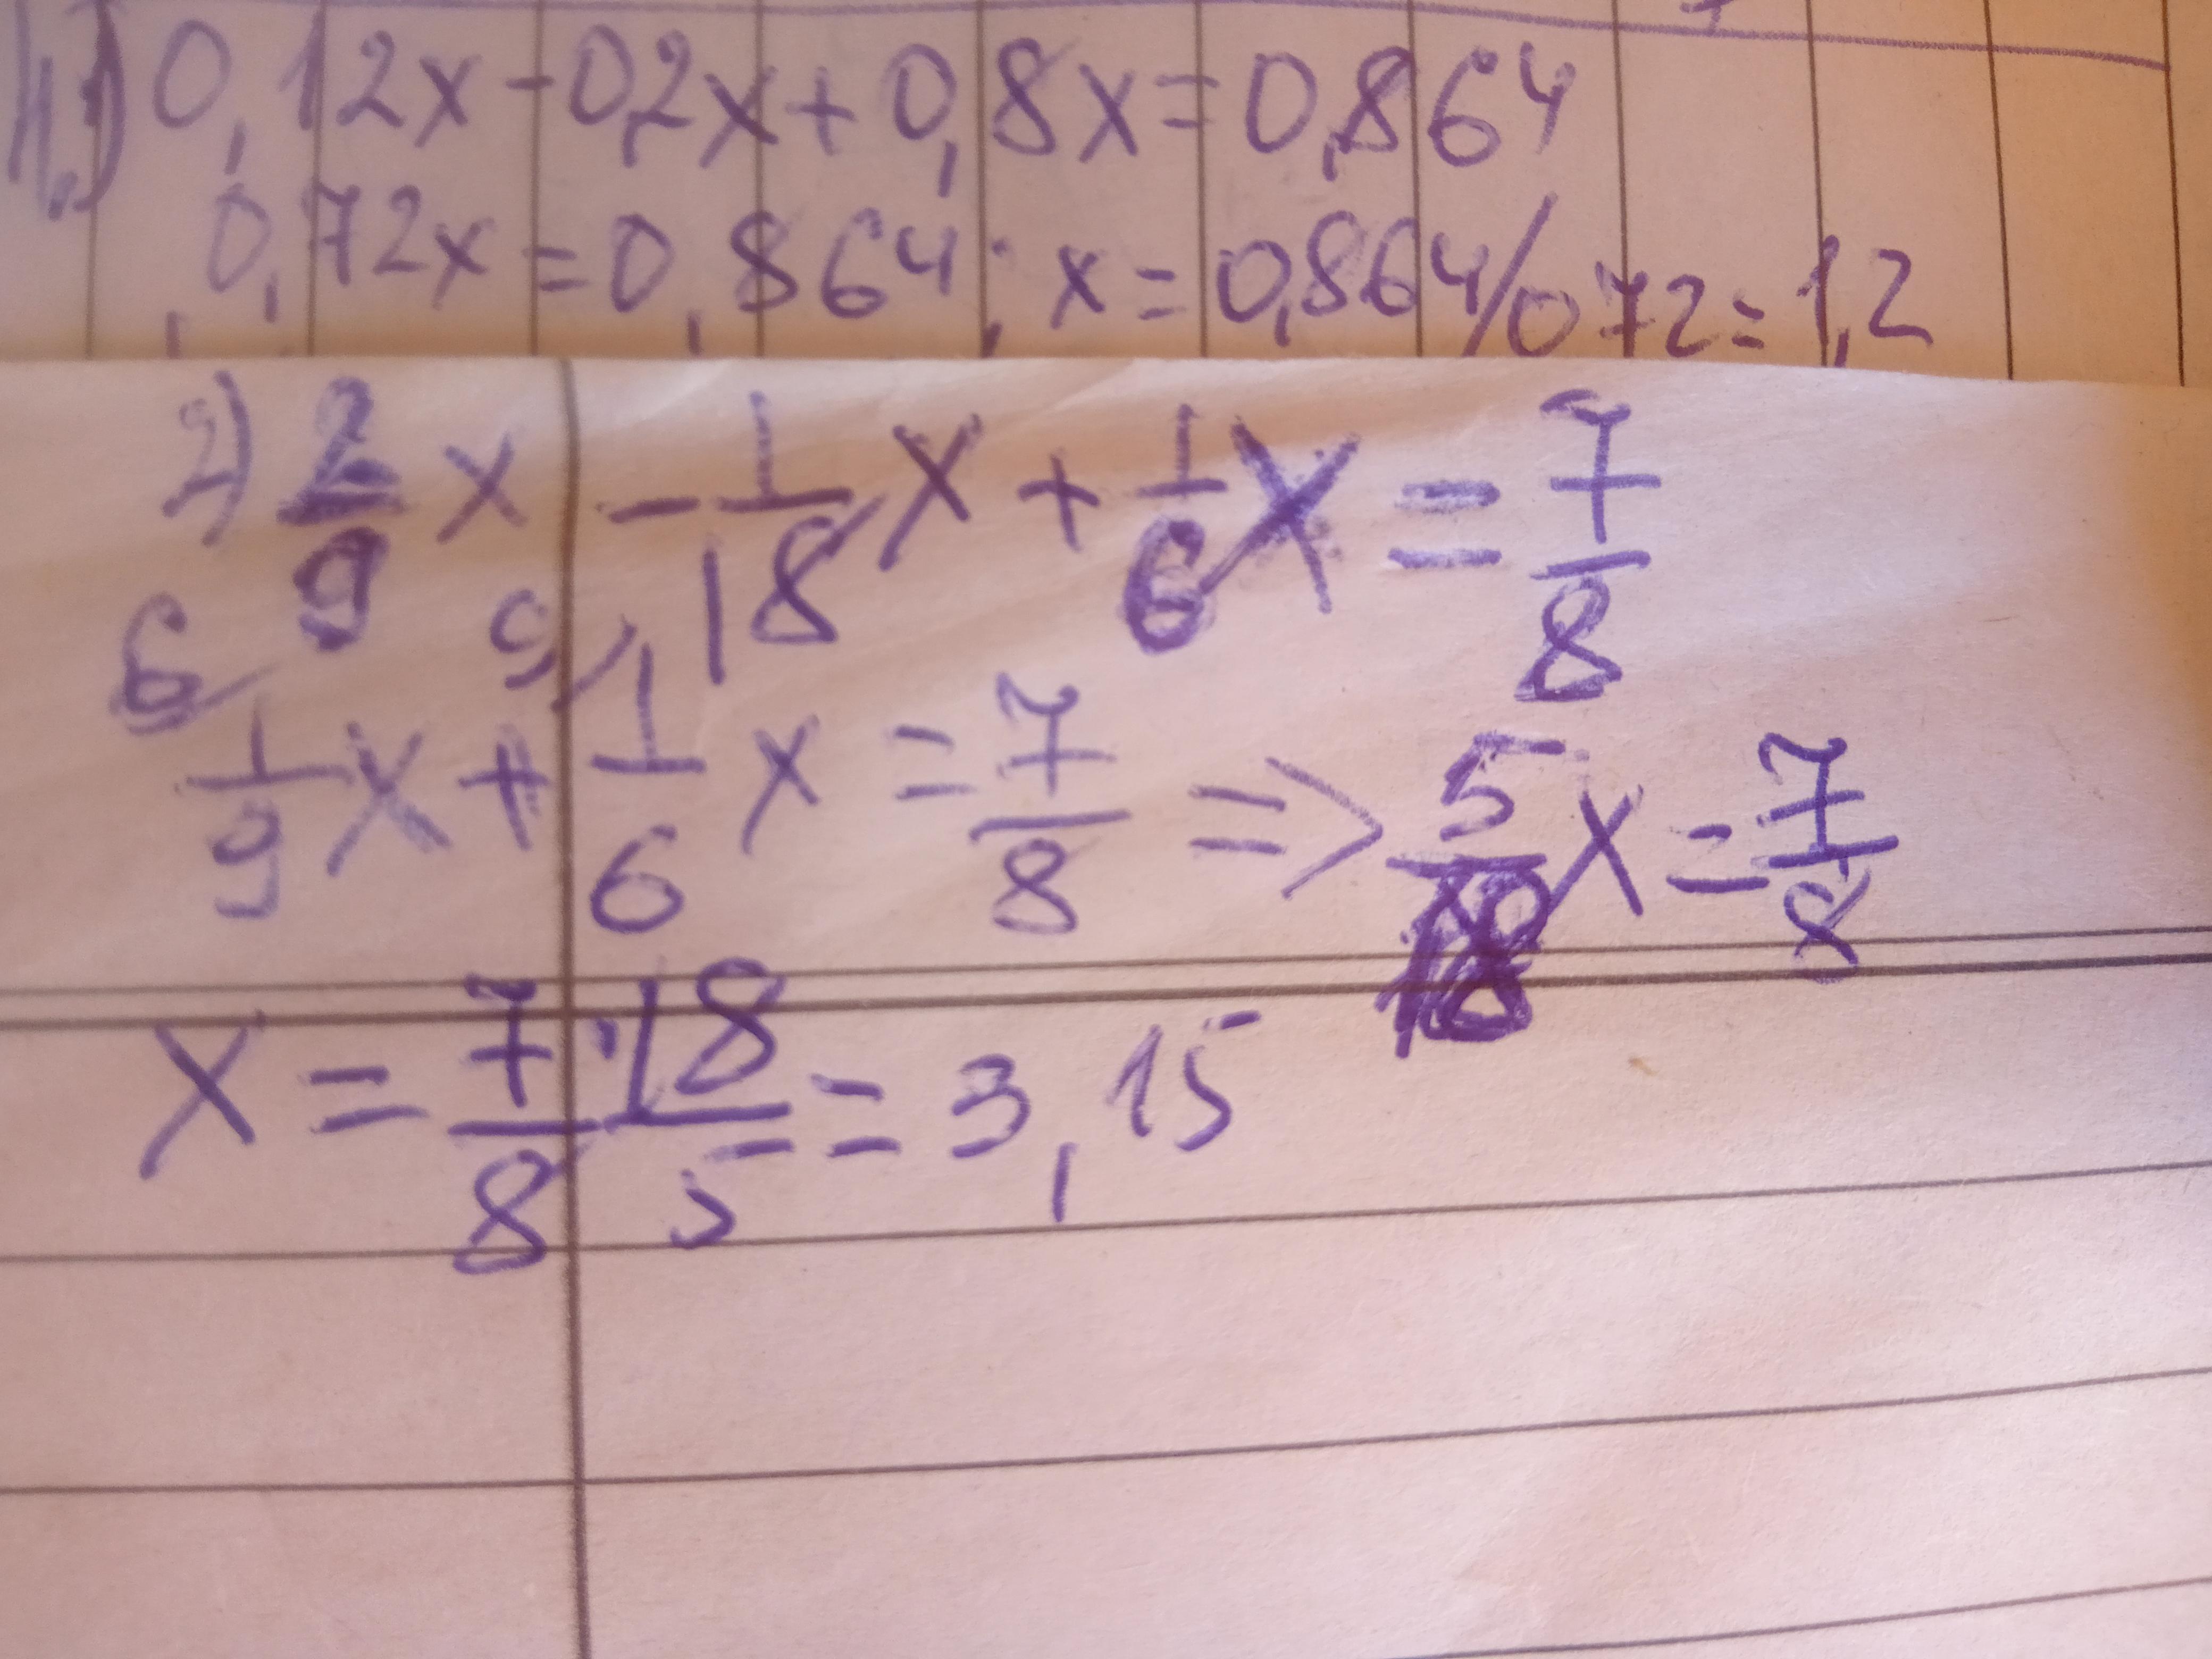 4.1) 0,12x-0,2x+0,8x=0,864
0,72x=0,864; x=0,864/072=1,2
2) 2/9 x - 1/18 x + 1/6 x = 7/8
6/ 9/
1/9 x + 1/6 x = 7/8 => 5/18 x = 7/8
x = 7/8 · 18/5 = 3,15